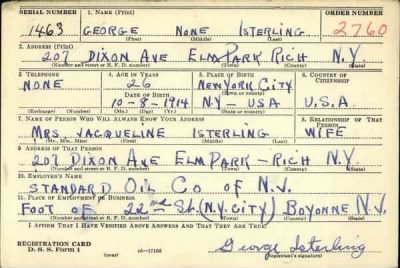 SERIAL NUMBER 1. NAME (Print) ORDER NUMBER
1463 GEORGE NONE ISTERLING 2760
(First) (Middle) (Last)
2. ADDRESS (Print)
207 DIXON AVE ELM PARK RICH N.Y.
(Number and street or R. F. D. number) (Town) (County) (State)
3. TELEPHONE 4. AGE IN YEARS 5. PLACE OF BIRTH 6. COUNTRY OF CITIZENSHIP
NONE 26 NEW YORK CITY
DATE OF BIRTH (Town or county)
10-8-1914 N.Y - USA U.S.A.
(Exchange) (Number) (Mo.) (Day) (Yr.) (State or country)
7. NAME OF PERSON WHO WILL ALWAYS KNOW YOUR ADDRESS 8. RELATIONSHIP OF THAT PERSON
MRS. JACQUELINE ISTERLING WIFE
(Mr., Mrs., Miss) (First) (Middle) (Last)
9. ADDRESS OF THAT PERSON
207 DIXON AVE ELM PARK - RICH N.Y.
(Number and street or R. F. D. number) (Town) (County) (State)
10. EMPLOYER'S NAME
STANDARD OIL CO OF N.J.
11. PLACE OF EMPLOYMENT OR BUSINESS
FOOT OF 22nd St. (N.Y. CITY) BOYONNE N.J.
(Number and street or R. F. D. number) (Town) (County) (State)
I AFFIRM THAT I HAVE VERIFIED ABOVE ANSWERS AND THAT THEY ARE TRUE.
REGISTRATION CARD
D. S. S. Form 1 (over) George Isterling
(Registrant's signature)